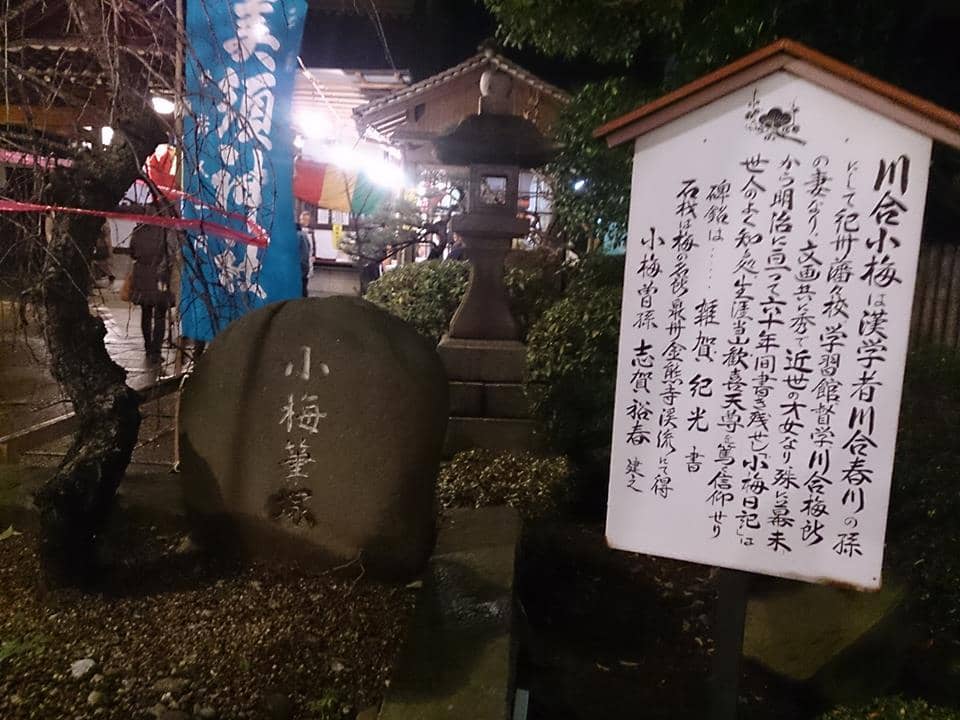 川合小梅は漢学者川合春川の孫
にして紀州藩々校学習館督学川合梅所
の妻なり、文画共に秀で近世の才女なり殊に幕末
から明治に亘って六十年間書き残せし「小梅日記」は
世人のよく知る処生涯当山歓喜天尊を篤く信仰せり
碑銘は……雑賀紀光書
石材は梅の名所泉州金熊寺渓流にて得
小梅曽孫 志賀裕春 建之
小梅筆塚